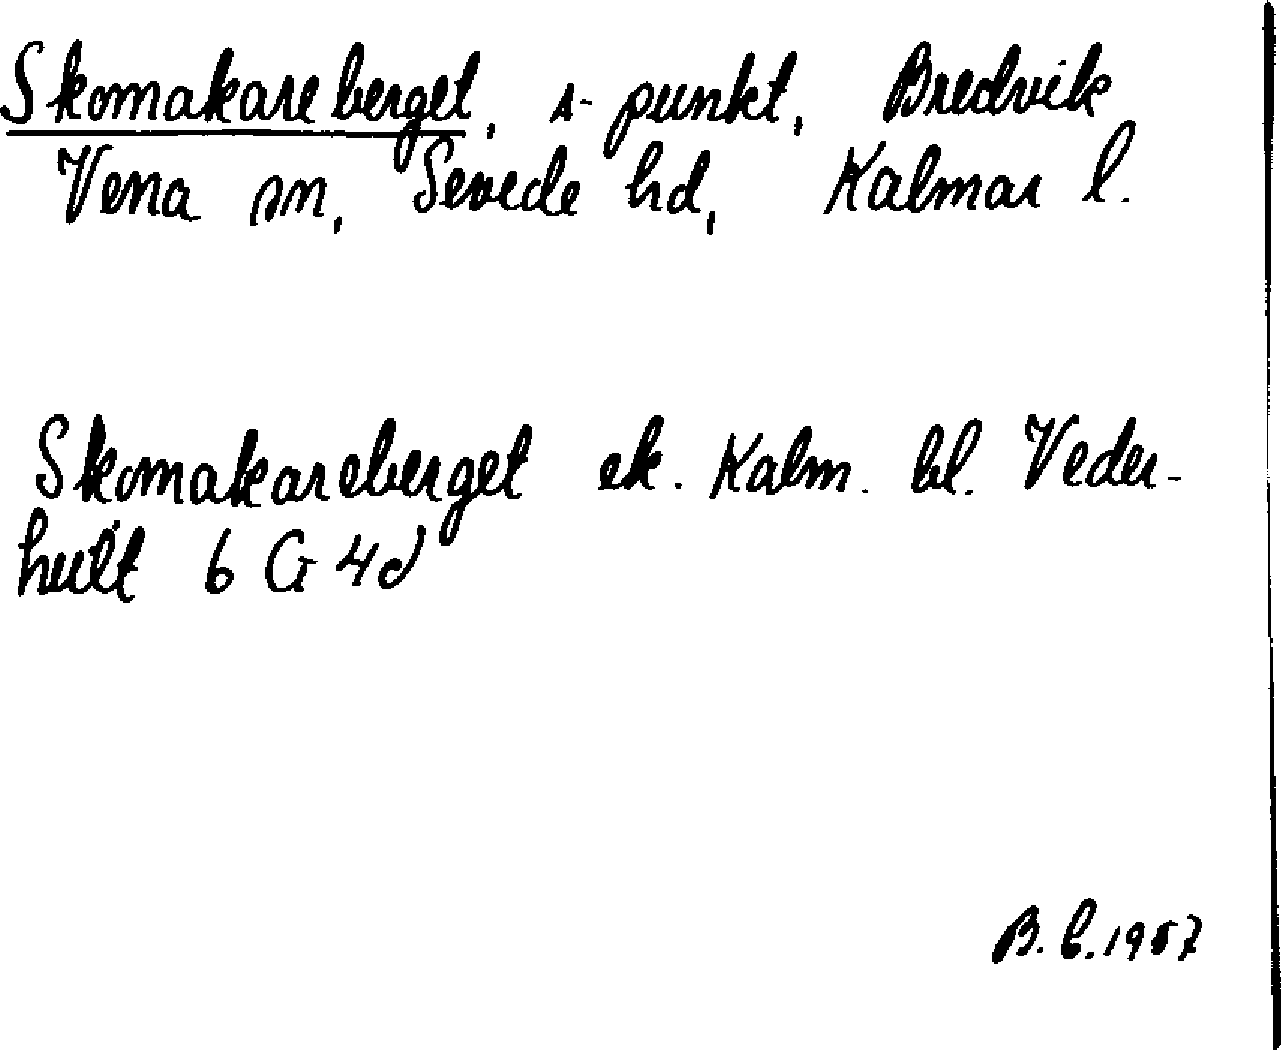 Skomakareberget, s-punkt, Bredvik
Vena sn, Sevede hd, Kalmar l.
Skomakareberget ek. Kalm. bl. Veder-
hult 6 G 4d
B. C. 1957